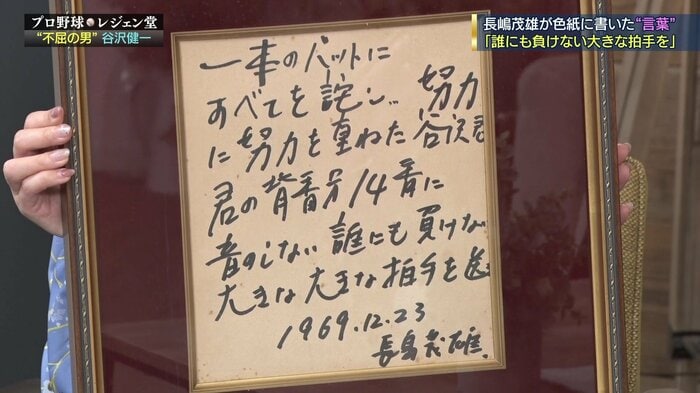 プロ野球レジェン堂
“不屈の男” 谷沢健一
長嶋茂雄が色紙に書いた“言葉”
「誰にも負けない大きな拍手を」
一本のバットに
すべてを託し、努力
に努力を重ねた谷沢君
君の背番号14番に
音のしない誰にも負けない
大きな大きな拍手を送
1969.12.23
長島茂雄